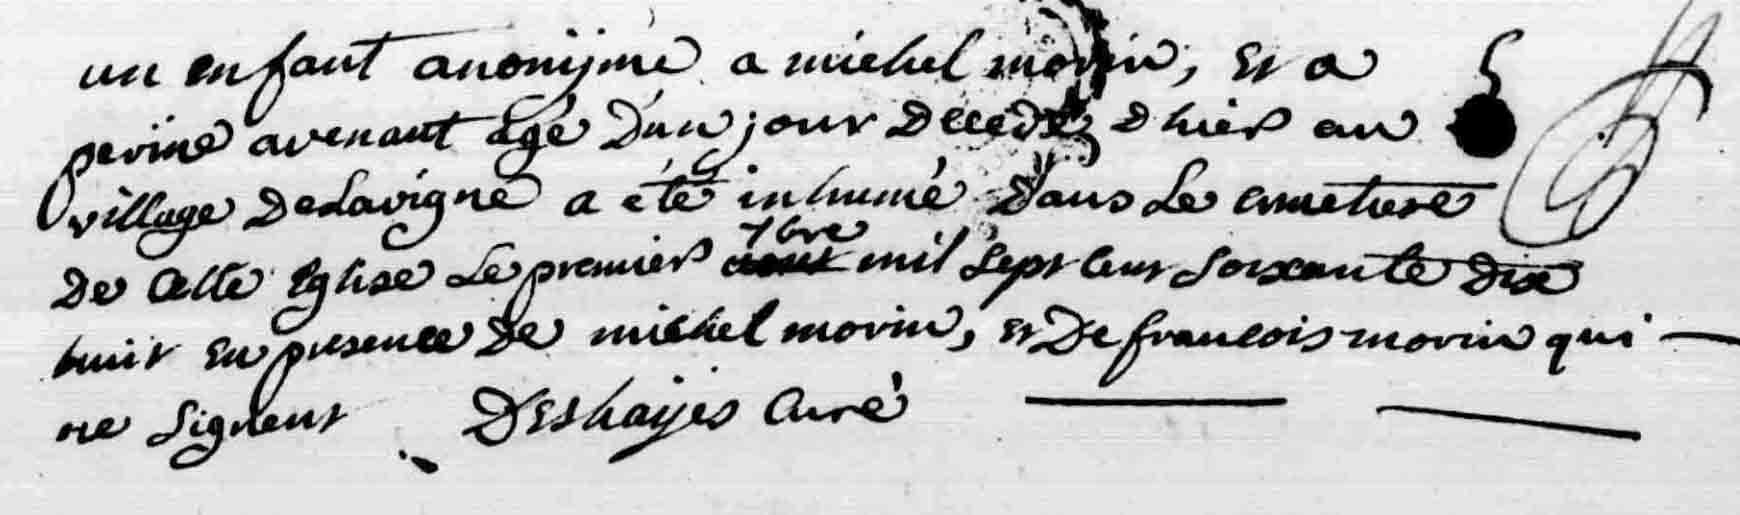 un enfant anonijme a michel morin, et a
perine avenant agé d'un jour decedé d hier au
village delavigne a été inhumé dans le cimetiere
de cette Eglise le premier 7bre mil sept cent soixante dix
huit en presence de michel morin, et de francois morin qui
ne signent Deshaijes curé